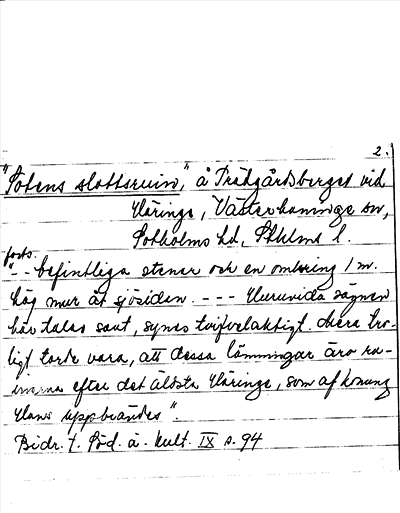 2.
"Sotens slottsruin," å Trädgårdsberget vid
Häringe, Västerhaninge sn,
Sotholms hd, Sthlms l.
forts.
"-- befintliga stenar och en omkring 1 m.
hög mur åt sjösidan. --- Huruvida sägnen
här talar sant, synes tvifvelaktigt. Mera tro-
ligt torde vara, att dessa lämningar äro ru-
inerna efter det äldsta Häringe, som af konung
Hans uppbrändes".
Bidr. t. Söd. ä. kult. IX s. 94